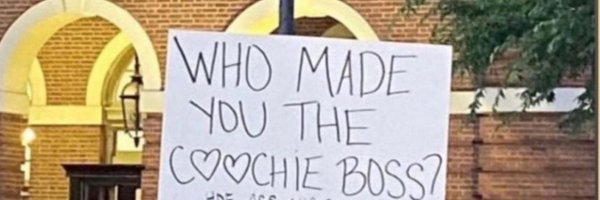 WHO MADE
YOU THE
C♡♡CHIE BOSS?